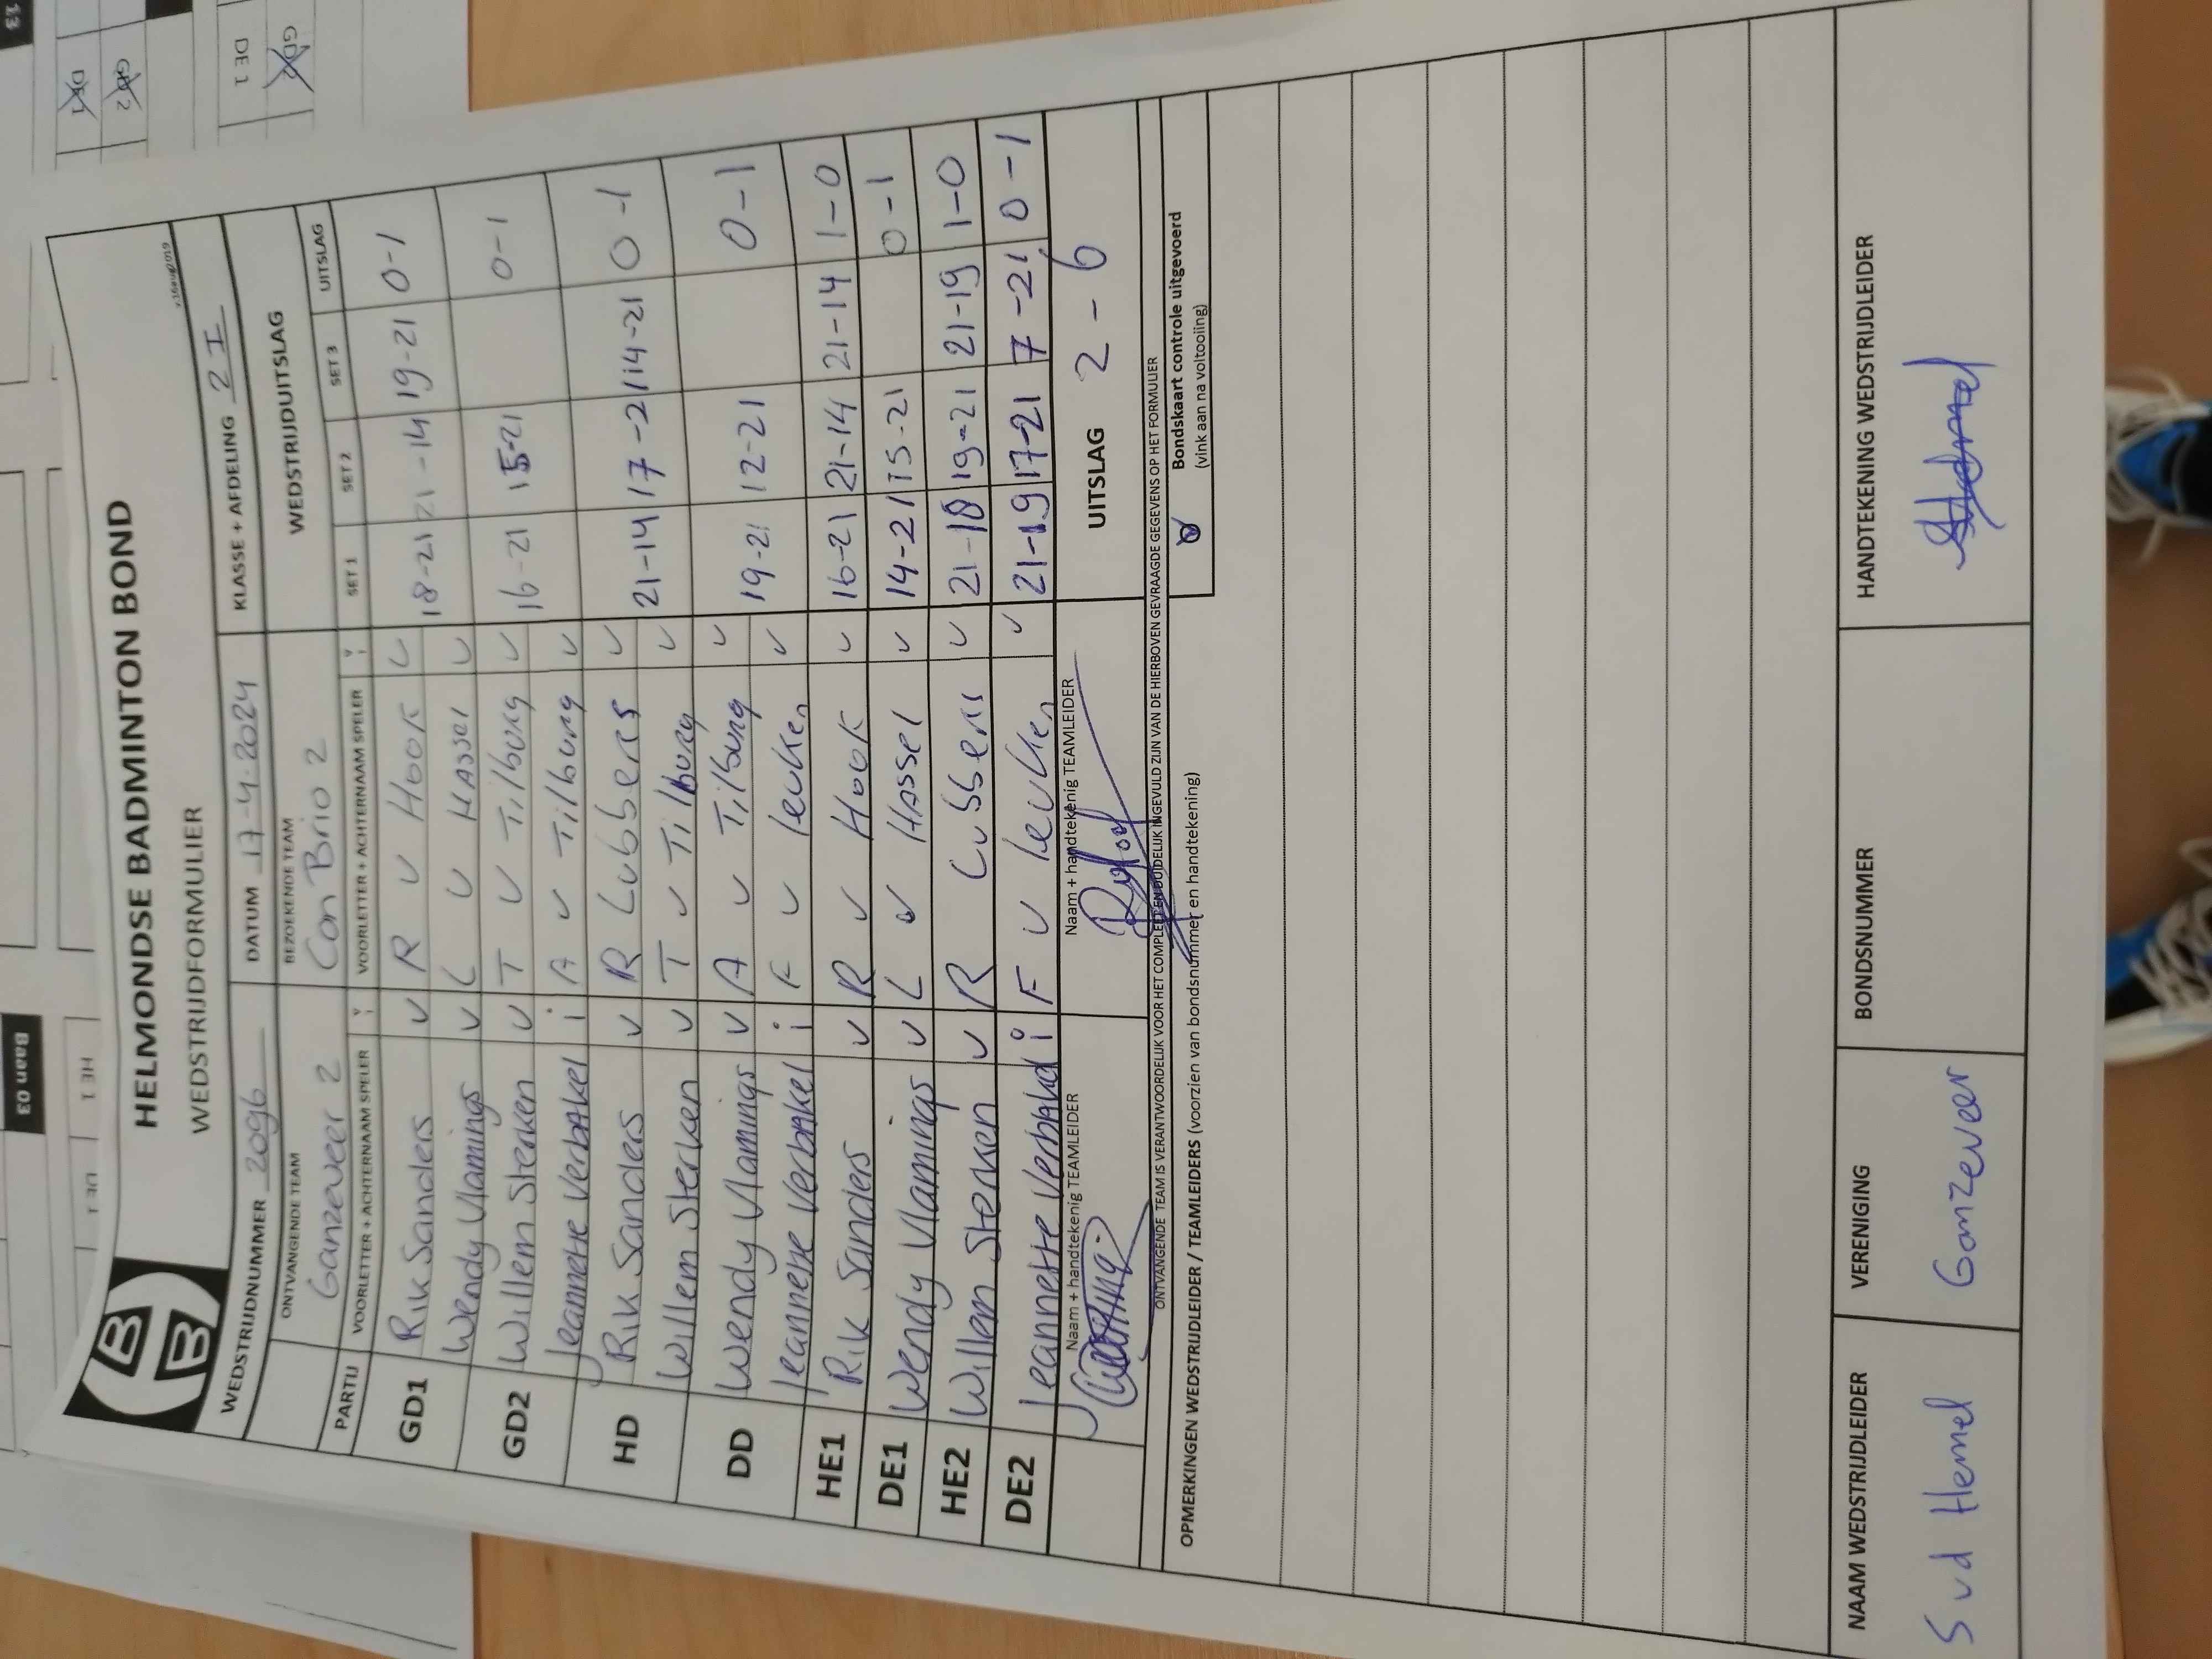 HELMONDSE BADMINTON BOND
WEDSTRIJDFORMULIER
v.16aug2019
WEDSTRIJDNUMMER 2096 DATUM 17-4-2024 KLASSE + AFDELING 2 I
ONTVANGENDE TEAM BEZOEKENDE TEAM WEDSTRIJDUITSLAG
Ganzeveer 2 Con Brio 2
PARTIJ VOORLETTER + ACHTERNAAM SPELER VOORLETTER + ACHTERNAAM SPELER SET 1 SET 2 SET 3 UITSLAG
GD1 Rik Sanders v R v Hoof v 18-21 21-14 19-21 0-1
Wendy Vlamings v L v Hassel v
GD2 Willem Sterken v T v Tilburg v 16-21 15-21 0-1
Jeannette Verbakel i A v Tilburg v
HD Rik Sanders v R Lubbers v 21-14 17-21 14-21 0-1
Willem Sterken v T v Tilburg v
DD Wendy Vlamings v A v Tilburg v 19-21 12-21 0-1
Jeannette Verbakel i F v Leuken v
HE1 Rik Sanders v R v Hoof v 16-21 21-14 21-14 1-0
DE1 Wendy Vlamings v L v Hassel v 14-21 15-21 0-1
HE2 Willem Sterken v R Lubbers v 21-18 19-21 21-19 1-0
DE2 Jeannette Verbakel i F v Leuken v 21-19 17-21 7-21 0-1
Naam + handtekenig TEAMLEIDER Naam + handtekenig TEAMLEIDER UITSLAG 2-6
ONTVANGENDE TEAM IS VERANTWOORDELIJK VOOR HET COMPLEET EN DUIDELIJK INGEVULD ZIJN VAN DE HIERBOVEN GEVRAAGDE GEGEVENS OP HET FORMULIER
Bondskaart controle uitgevoerd
(vink aan na voltooiing)
OPMERKINGEN WEDSTRIJDLEIDER / TEAMLEIDERS (voorzien van bondsnummer en handtekening)
NAAM WEDSTRIJDLEIDER VERENIGING BONDSNUMMER HANDTEKENING WEDSTRIJDLEIDER
S vd Hemel Ganzeveer
Baan 03
HE 1
DE 1
13
DE1
GD2
DE 1
GD2